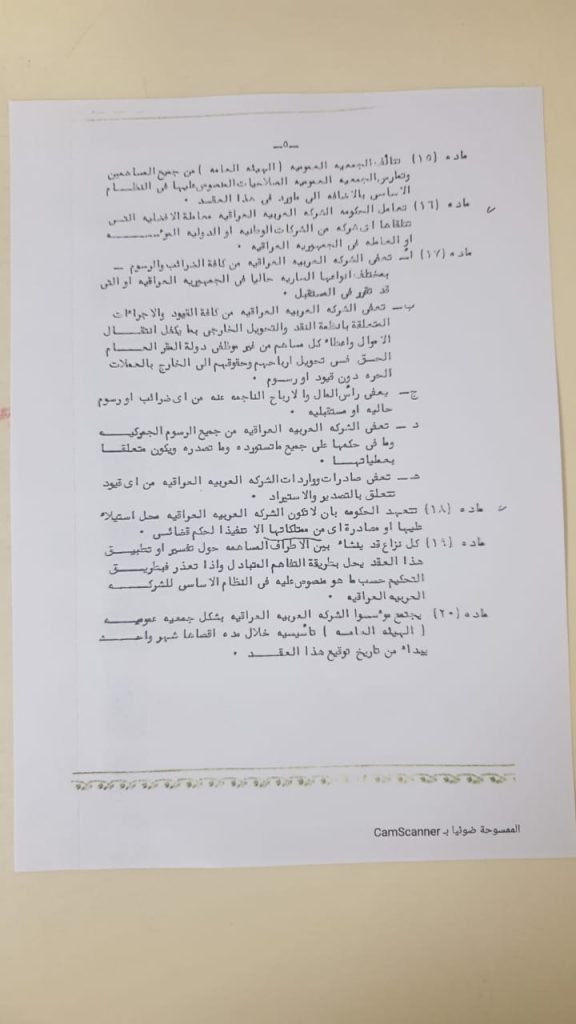 ـ٥ـ
ماده (١٥) تتألف الجمعيه العموميه (الهيئه العامه) من جميع المساهمين
وتمارس الجمعيه العموميه الصلاحيات المنصوص عليها فى النظام
الاساسى بالاضافه الى ماورد فى هذا العقد .
ماده (١٦) تعامل الحكومه الشركه العربيه العراقيه معاملة الافضليه التى
تتلقاها اى شركه من الشركات الوطنيه او الدوليه
او العامله فى الجمهوريه العراقيه .
ماده (١٧) أ ـ تعفى الشركه العربيه العراقيه من كافة الضرائب والرسوم ـ
بمختلف انواعها الساريه حاليا فى الجمهوريه العراقيه او التى
قد تتقرر فى المستقبل .
ب ـ تعفى الشركه العربيه العراقيه من كافة القيود والاجراءات
المتعلقة بانظمة النقد والتحويل الخارجى بما يكفل انتقال
الاموال واعطاء كل مساهم من غير موظفى دولة المقر العام
الحق فى تحويل ارباحهم وحقوقهم الى الخارج بالعملات
الحره دون قيود او رسوم .
ج ـ يعفى رأس المال والارباح الناجمه عنه من اى ضرائب او رسوم
حاليه او مستقبليه .
د ـ تعفى الشركه العربيه العراقيه من جميع الرسوم الجمركيه
وما فى حكمها على جميع ماتستورده وما تصدره ويكون متعلقا
بعملياتها .
هـ ـ تعفى صادرات وواردات الشركه العربيه العراقيه من اى قيود
تتعلق بالتصدير والاستيراد .
ماده (١٨) تتعهد الحكومه بان لاتكون الشركه العربيه العراقيه محل استيلاء
عليها او مصادرة اى من ممتلكاتها الا تنفيذا لحكم قضائى .
ماده (١٩) كل نزاع قد ينشاء بين الاطراف المساهمه حول تفسير او تطبيق
هذا العقد يحل بطريقة التفاهم المتبادل واذا تعذر فبطريق
التحكيم حسب ما هو منصوص عليه فى النظام الاساسى للشركه
العربيه العراقيه .
ماده (٢٠) يجتمع مؤسسوا الشركه العربيه العراقيه بشكل جمعيه عموميه
(الهيئه العامه) تأسيسيه خلال مده اقصاها شهر واحد
يبداء من تاريخ توقيع هذا العقد .
الممسوحة ضوئيا بـ CamScanner